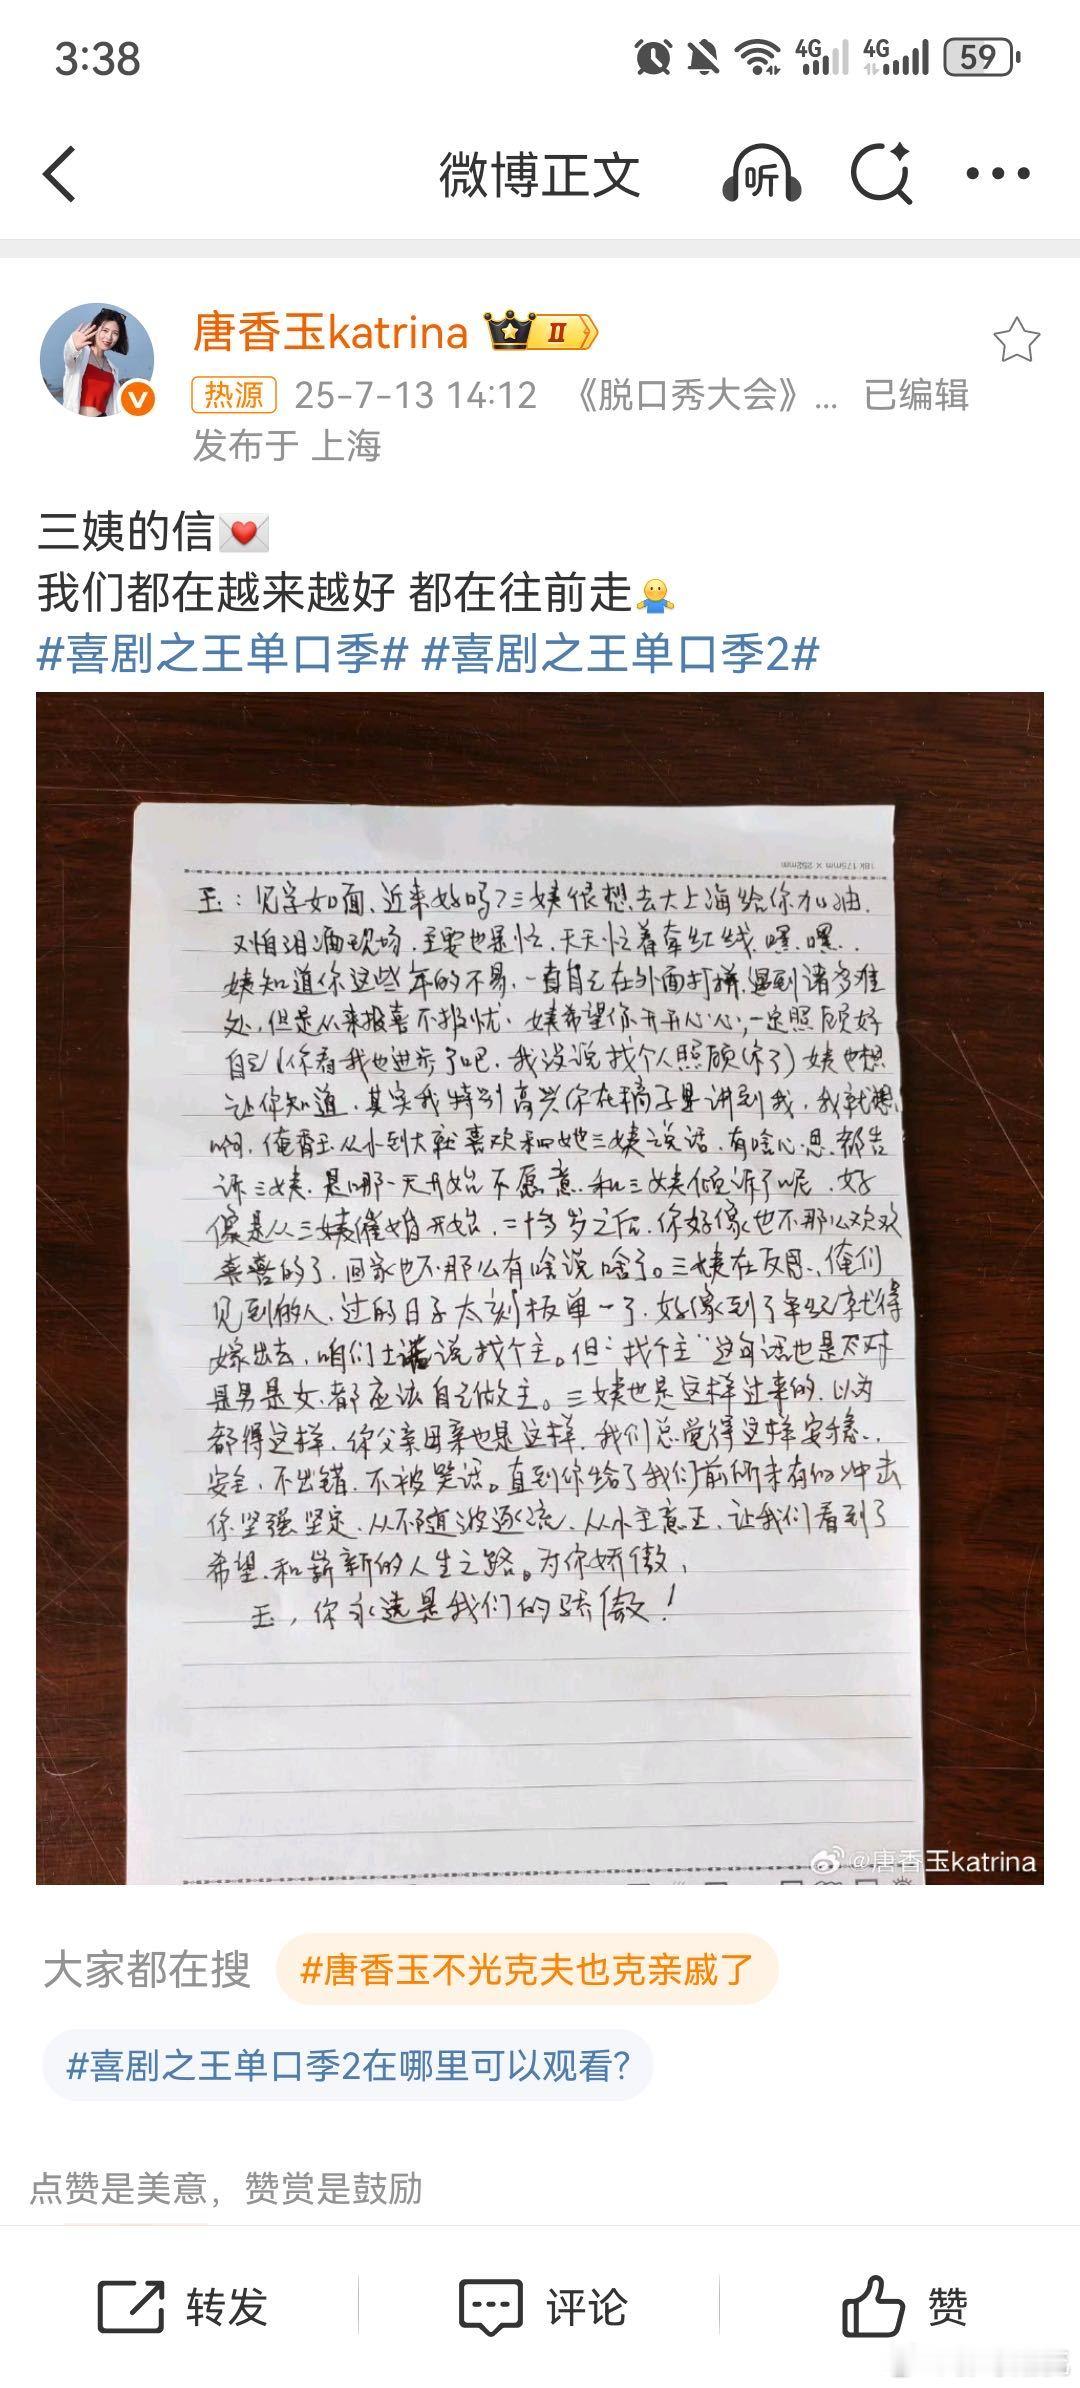 3:38
4G 4G 59
微博正文 听
唐香玉katrina II
热源 25-7-13 14:12 《脱口秀大会》... 已编辑
发布于 上海
三姨的信💌
我们都在越来越好 都在往前走🤷
#喜剧之王单口季# #喜剧之王单口季2#
18k 175mm × 252mm
玉：见字如面、近来好吗？三姨很想去大上海给你加油.
又怕泪洒现场，主要也是忙，天天忙着牵红线，嘿、嘿..
姨知道你这些年的不易，一直自己在外面打拼，遇到诸多难
处，但是从来报喜不报忧、姨希望你开开心心，一定照顾好
自己（你看我也进步了吧，我没说找个人照顾你了）姨也想
让你知道，其实我特别高兴你在稿子里讲到我，我就想，
啊，俺香玉从小到大就喜欢和她三姨说话，有啥心思都告
诉三姨，是哪一天开始不愿意和三姨倾诉了呢，好
像是从三姨催婚开始，二十多岁之后，你好像也不那么欢欢
喜喜的了，回家也不那么有啥说啥了。三姨在反思，俺们
见到的人，过的日子太刻板单一了，好像到了年纪就得
嫁出去，咱们土话说找个主。但“找个主”这句话也是不对
是男是女，都应该自己做主。三姨也是这样过来的，以为
都得这样，你父亲母亲也是这样，我们总觉得这样安稳，
安全，不出错，不被笑话。直到你给了我们前所未有的冲击
你坚强坚定，从不随波逐流，从小主意正，让我们看到了
希望，和崭新的人生之路。为你骄傲，
玉，你永远是我们的骄傲！
@唐香玉katrina
大家都在搜 #唐香玉不光克夫也克亲戚了
#喜剧之王单口季2在哪里可以观看?
点赞是美意，赞赏是鼓励
转发 评论 赞